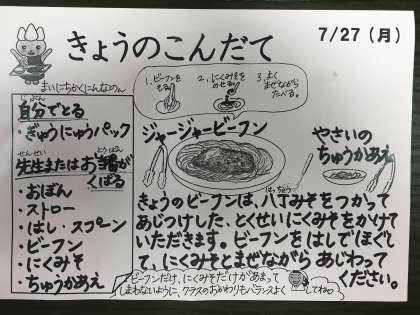 きょうのこんだて
7/27（月）
まいにちかくにんなのん
1、ビーフンを
もる。
2、にくみそを
のせる。
3、よく
まぜながら
たべる。
じぶん
自分でとる
・ぎゅうにゅうパック
せんせい とうばん
先生またはお当番が
くばる
・おぼん
・ストロー
・はし・スプーン
・ビーフン
・にくみそ
・ちゅうかあえ
ジャージャービーフン
やさいの
ちゅうかあえ
はっちょう
きょうのビーフンは、八丁みそをつかって
あじつけした、とくせいにくみそをかけて
いただきます。ビーフンをはしでほぐし
て、にくみそとまぜながらあじわって
ください。
ビーフンだけ、にくみそだけがあまって
しまわないように、クラスのおかわりもバランスよく
してね